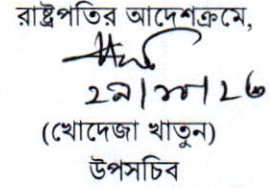 রাষ্ট্রপতির আদেশক্রমে,
(খোদেজা খাতুন)
উপসচিব